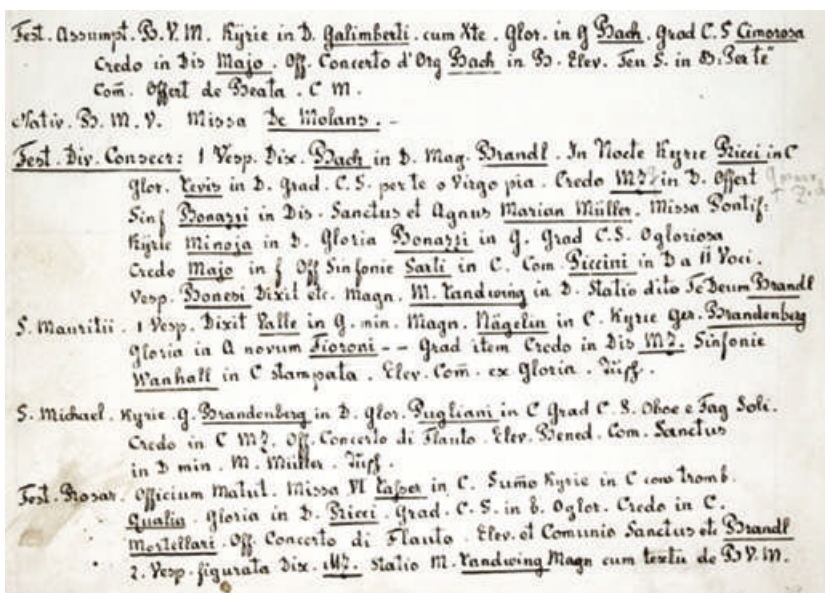 Fest. Assumpt. B. V. M. Kyrie in D. Galimberti. cum Xte. Glor. in g Bach. Grad C. S Cimorosa
Credo in Dis Majo. Off. Concerto d'Org Bach in B. Elev. Jeu S. in B: Per te"
Com̄. Offert de Beata. C M.
Nativ. B. M. V. Missa De Molans. -
Fest. Div. Consecr: 1 Vesp. Dix. Bach in D. Mag. Brandl. In Nocte Kyrie Ricci in C
Glor. Levis in D. Grad. C. S. per te o Virgo pia. Credo MJ in D. Offert
Sinf Bonazzi in Dis. Sanctus et Agnus Marian Müller. Missa Pontif:
Kyrie Minoja in D. Gloria Bonazzi in g. Grad C.S. O gloriosa
Credo Majo in f Off Sinfonie Sarti in C. Com. Piccini in D a 11 Voci.
Vesp. Bonesi Dixit etc. Magn. M. Landwing in D. Statio dito Te Deum Brandl
S. Mauritii. 1 Vesp. Dixit Valle in G. min. Magn. Nägelin in C. Kyrie Ger. Brandenberg
Gloria in A novum Fioroni - - Grad item Credo in Dis MJ. Sinfonie
Wanhall in C stampata. Elev. Com̄. ex Gloria.
S. Michael. Kyrie. G. Brandenberg in D. Glor. Pugliani in C Grad C. S. Oboe e Fag Soli.
Credo in C MJ. Off. Concerto di Flauto. Elev. Bened. Com. Sanctus
in D min. M. Müller.
Fest. Rosar. Officium Matut. Missa VI Lasser in C. Sum̄o Kyrie in C con tromb.
Qualia. Gloria in D. Ricci. Grad. C. S. in b. O glor. Credo in C.
Mortellari. Off. Concerto di Flauto. Elev. et Comunio Sanctus etc Brandl
2. Vesp. figurata Dix. MJ. Statio M. Landwing Magn cum textu de B V. M.